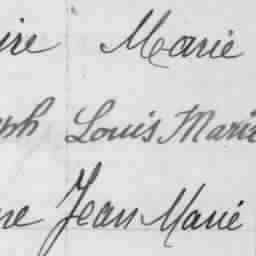 ire Marie
eph Louis Marie
ne Jean Marie